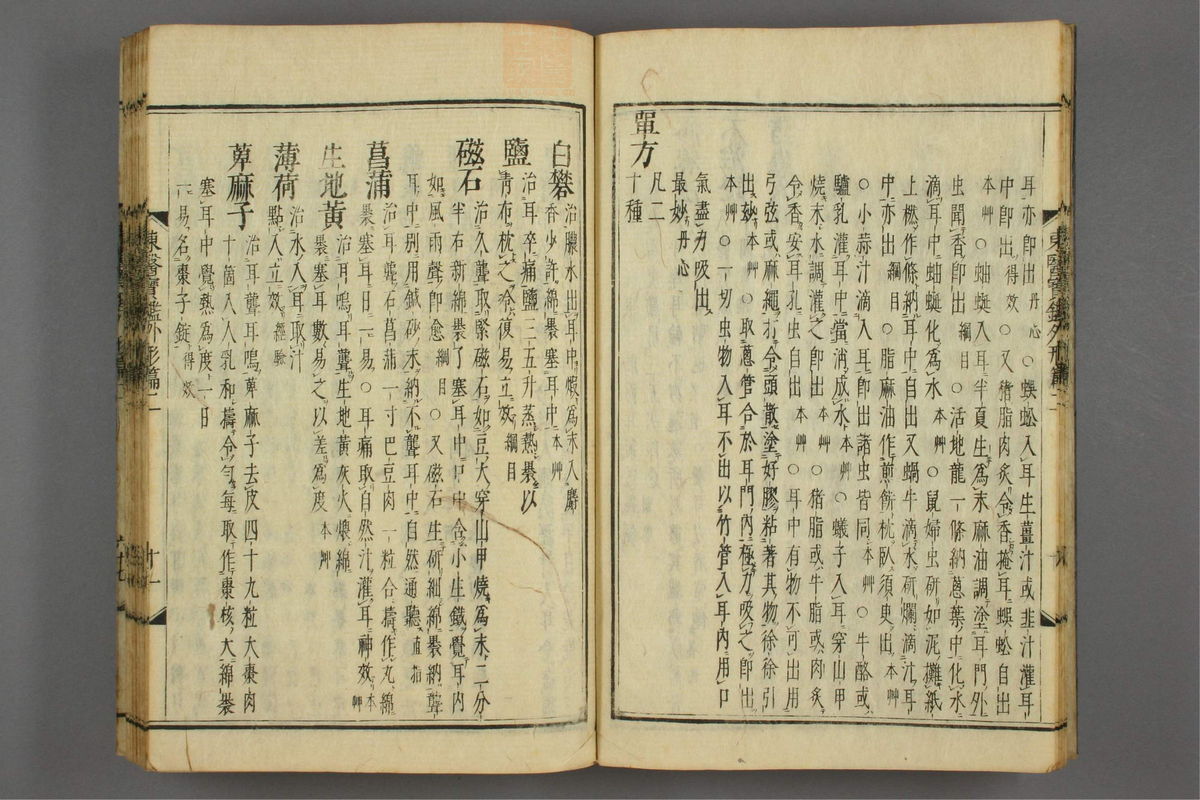 耳亦卽出丹心○蜈蚣入耳生薑汁或韭汁灌耳
中卽出得效○又猪脂肉炙令香掩耳蜈蚣自出
本艸○蚰蜒入耳半夏生爲末麻油調塗耳門外
虫聞香卽出綱目○活地龍一條納蔥葉中化水
滴耳中蚰蜒化爲水本艸○鼠婦虫硏如泥攤紙
上撚作條納耳中自出又蝸牛滴水硏爛滴汁耳
中亦出綱目○脂麻油作煎餠枕臥須臾出本艸
○小蒜汁滴入耳卽出諸虫皆同本艸○牛酪或
驢乳灌耳中當消成水本艸○蟻子入耳穿山甲
燒末水調灌之卽出本艸○猪脂或牛脂或肉炙
令香安耳孔虫自出本艸○耳中有物不可出用
弓弦或麻繩打令頭散塗好膠粘著其物徐徐引
出妙本艸○一切虫物入耳不出以竹管入耳內用口
氣盡力吸出最妙丹心
單方
凡二
十種
白礬
治膿水出耳中煆爲末入麝
香少許綿裹塞耳中本艸
鹽
治耳卒痛鹽三五升蒸熱裹以
靑布枕之冷復易立效綱目
磁石
治久聾取緊磁石如豆大穿山甲燒爲末二分
半右新綿裹了塞耳中口中含小生鐵覺耳內
如風雨聲卽愈綱目○又磁石生硏細綿裹納聾
耳中別用鍼砂末納不聾耳中自然通聽直指
菖蒲
治耳聾石菖蒲一寸巴豆肉一粒合擣作丸綿
裹塞耳日一易○耳痛取自然汁灌耳神效本艸
生地黃
治耳鳴耳聾生地黃灰火煨綿
裹塞耳數易之以差爲度本艸
薄荷
治水入耳取汁
點入立效經驗
萆麻子
治耳聾耳鳴萆麻子去皮四十九粒大棗肉
十箇入人乳和擣令勻每取作棗核大綿裹
塞耳中覺熱爲度一日
一易名棗子錠得效
東醫寶鑑外形篇二
東醫寶鑑外形篇二